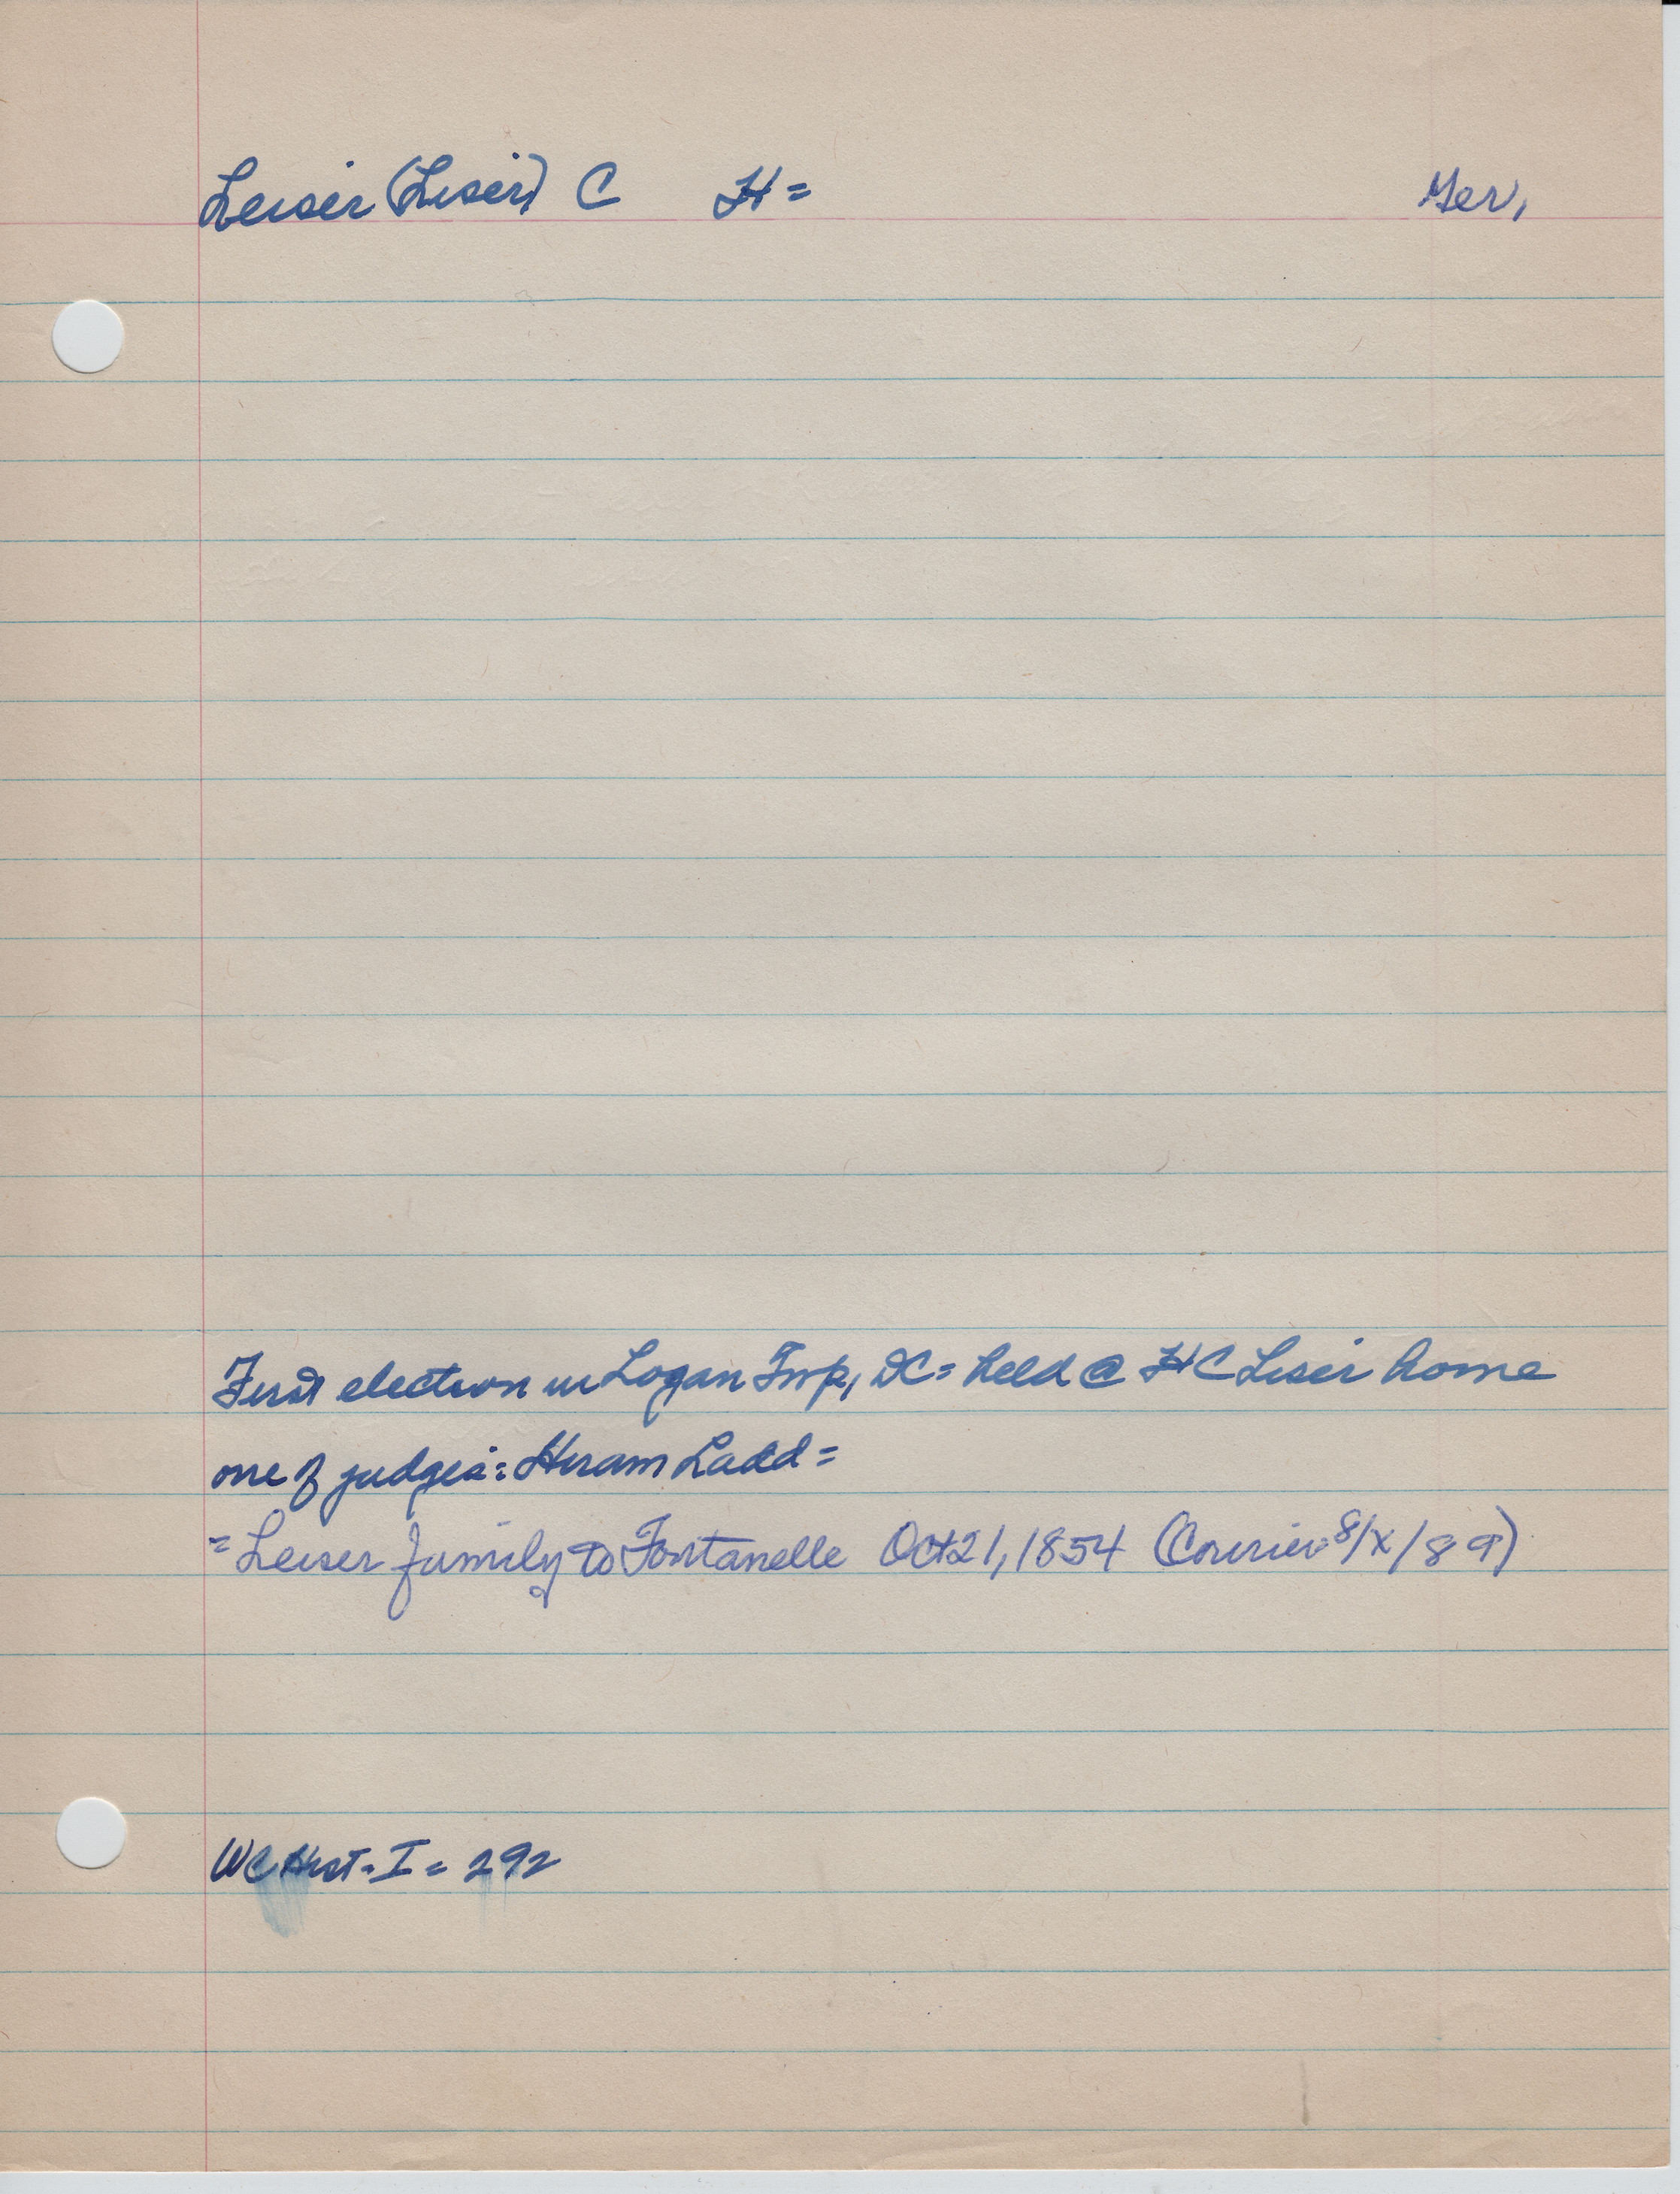 Leiser (Liser) C H = Ger,
First election in Logan Twp, DC = held @ H C Liser home
one of judges: Hiram Ladd =
= Leiser family to Fontanelle Oct 21, 1854 (Courier: 8/x/89)
WC Hist - I = 292